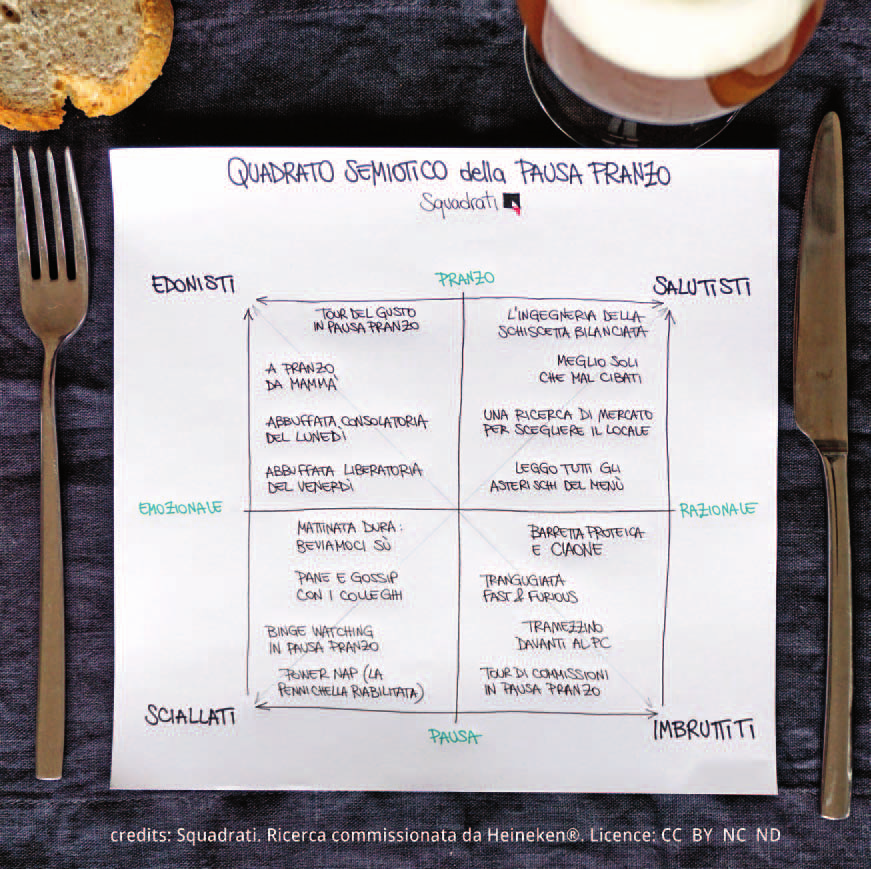 QUADRATO SEMIOTICO della PAUSA PRANZO
Squadrati
EDONISTI
PRANZO
SALUTISTI
TOUR DEL GUSTO
IN PAUSA PRANZO
A PRANZO
DA MAMMÀ
ABBUFFATA CONSOLATORIA
DEL LUNEDÌ
ABBUFFATA LIBERATORIA
DEL VENERDÌ
L'INGEGNERIA DELLA
SCHISCETTA BILANCIATA
MEGLIO SOLI
CHE MAL CIBATI
UNA RICERCA DI MERCATO
PER SCEGLIERE IL LOCALE
LEGGO TUTTI GLI
ASTERISCHI DEL MENÙ
EMOZIONALE
RAZIONALE
MATTINATA DURA:
BEVIAMOCI SÙ
PANE E GOSSIP
CON I COLLEGHI
BINGE WATCHING
IN PAUSA PRANZO
POWER NAP (LA
PENNICHELLA RIABILITATA)
BARRETTA PROTEICA
E CIAONE
TRANGUGIATA
FAST & FURIOUS
TRAMEZZINO
DAVANTI AL PC
TOUR DI COMMISSIONI
IN PAUSA PRANZO
SCIALLATI
PAUSA
IMBRUTTITI
credits: Squadrati. Ricerca commissionata da Heineken®. Licence: CC BY NC ND